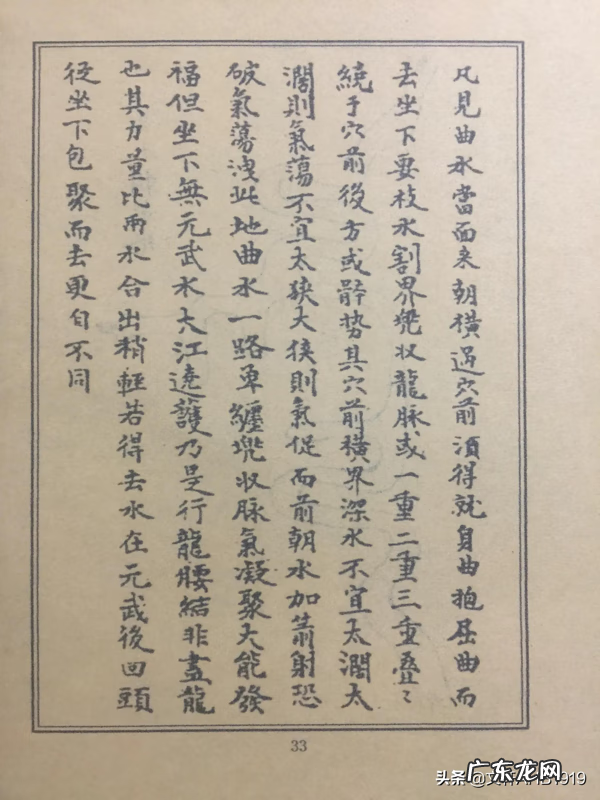 凡見曲水當面来朝橫過穴前須得就身曲抱屈曲而
去坐下要枝水割界兠収龍脉或一重二重三重叠〻
繞于穴前後方或骻势其穴前横界深水不宜太濶太
濶則氣蕩不宜太狭大狭則氣促而前朝水加箭射恐
破氣蕩洩此地曲水一路单纏兠収脉氣凝聚大能發
福但坐下無元武水大江遶護乃是行龍腰結非盡龍
也其力量比兩水合出稍輕若得去水在元武後回頭
從坐下包聚而去更自不同
33
头条
广东龙网
1919